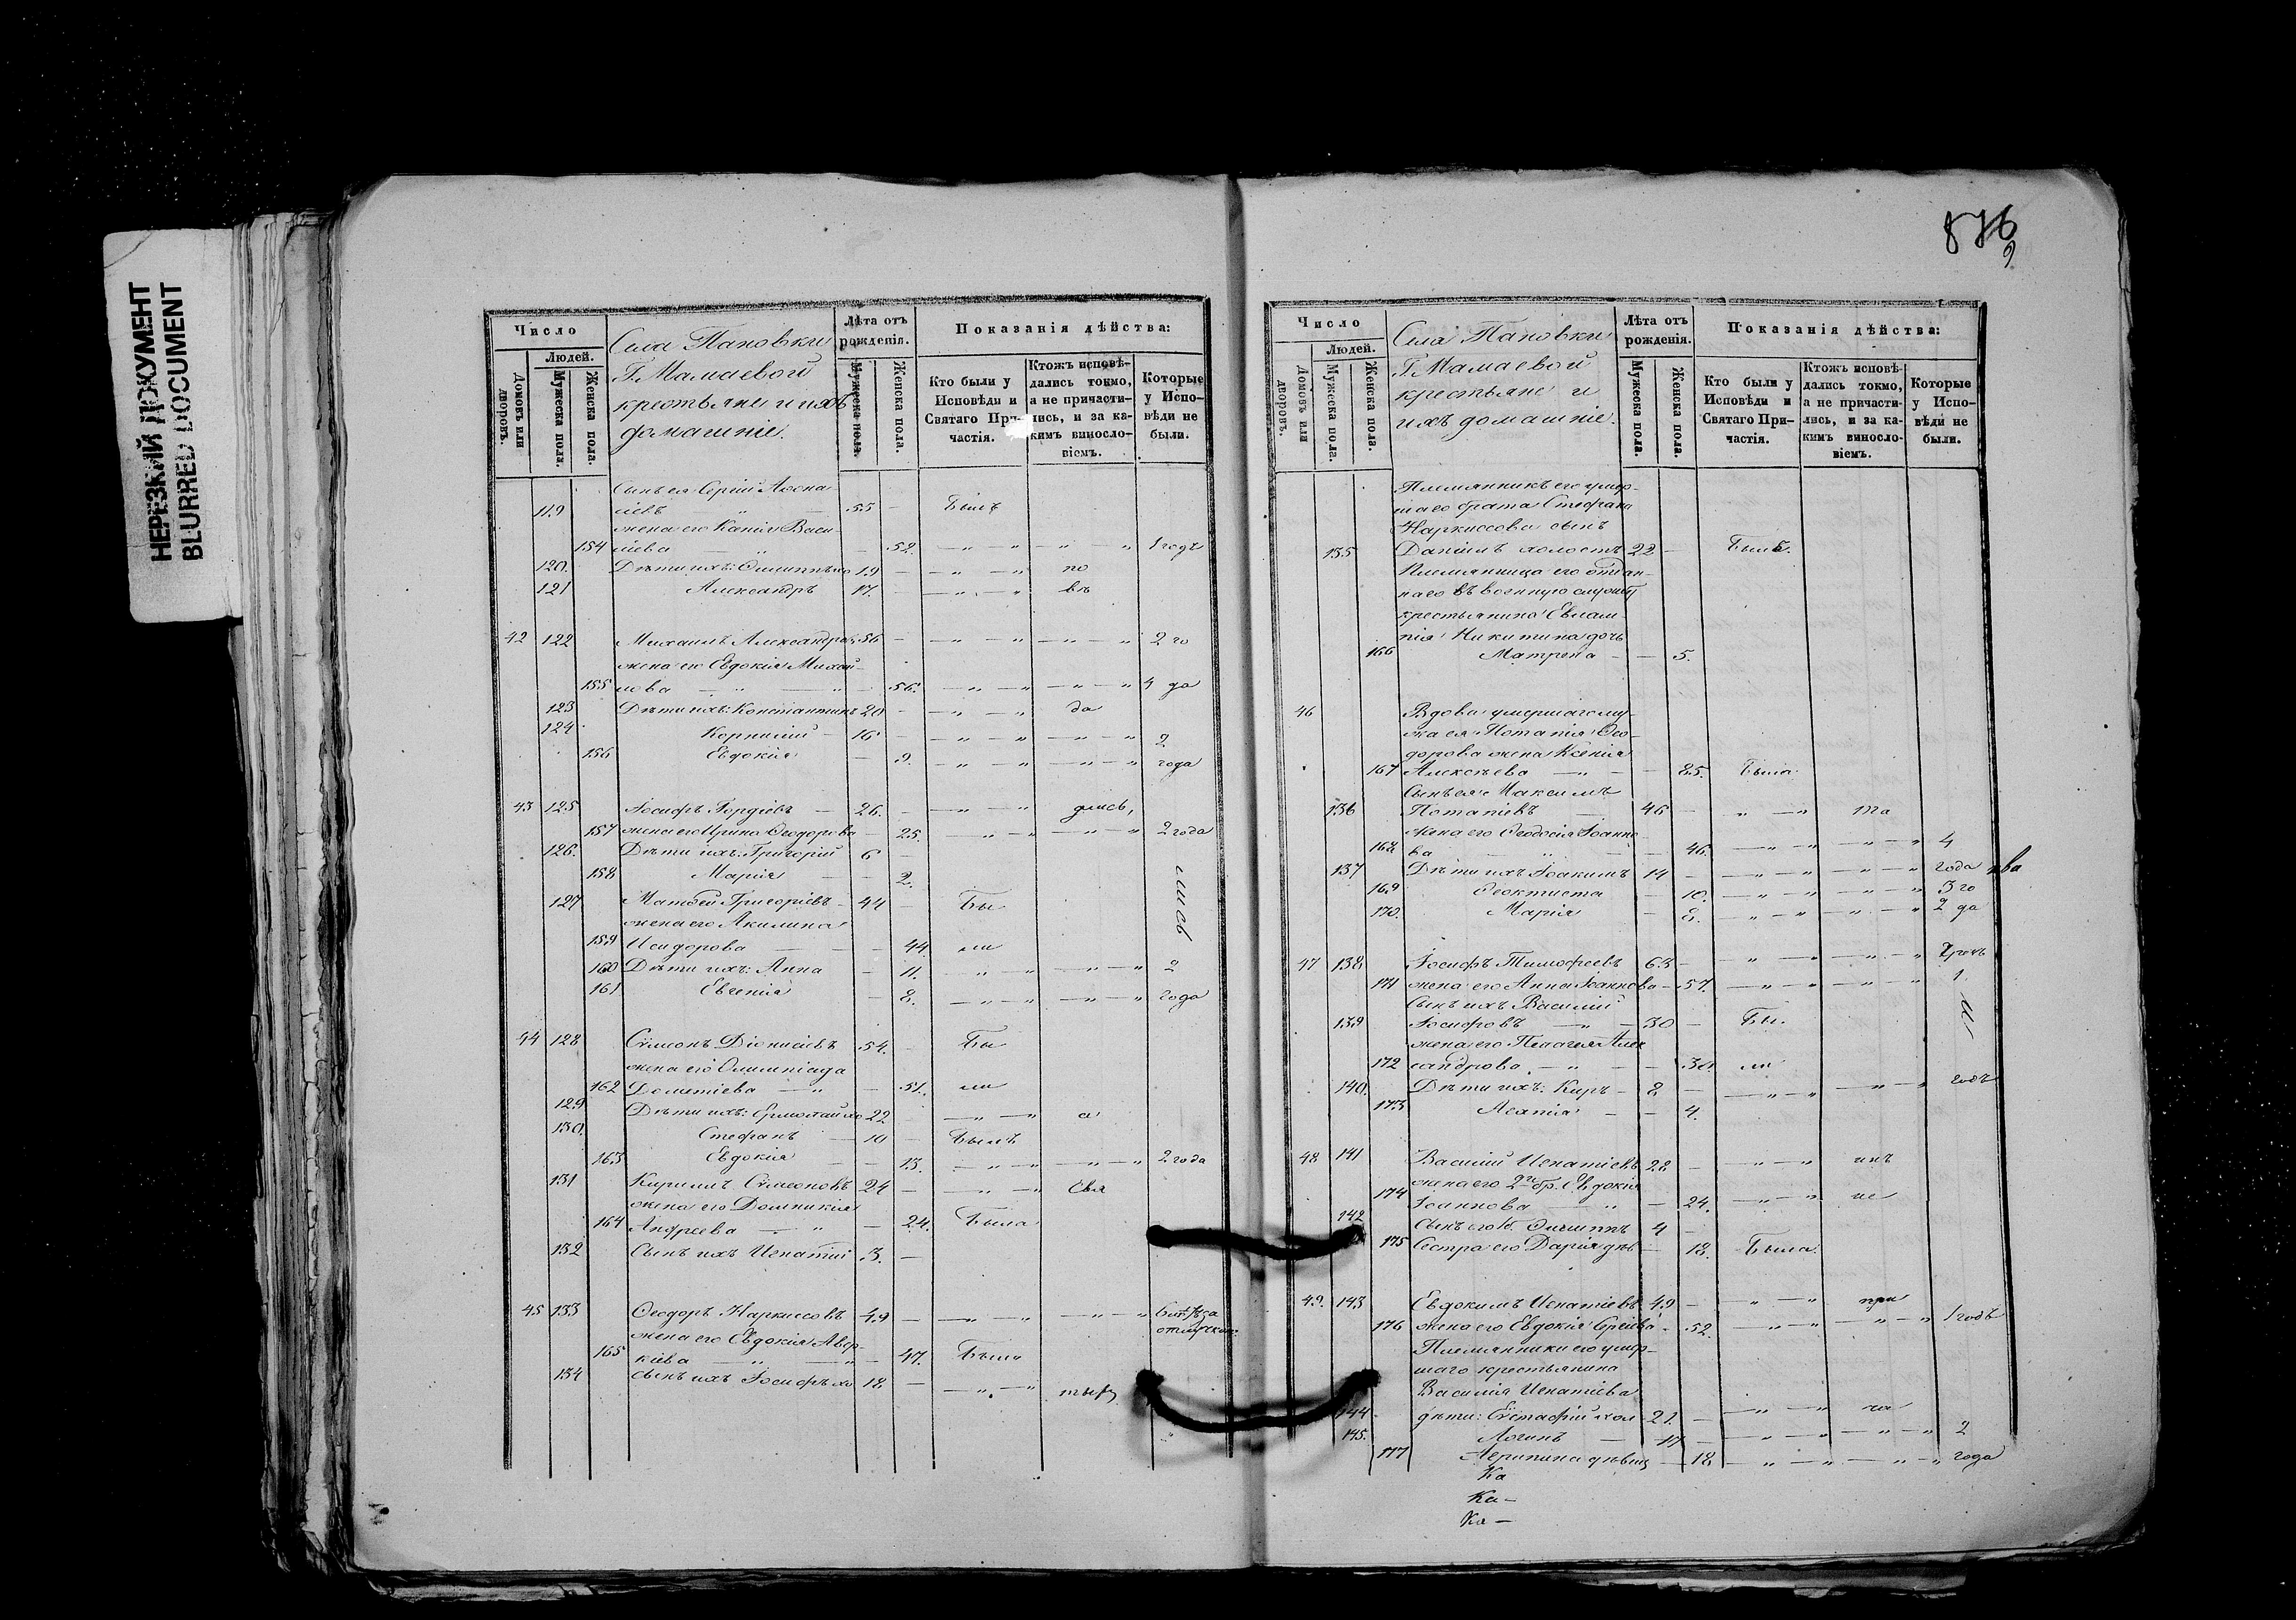 НЕРЕЗКИЙ ДОКУМЕНТ
BLURRED DOCUMENT
876
9
Число
Людей.
Домовъ или дворовъ.
Мужеска пола.
Женска пола.
Села Пановки
Г. Мамаевой
крестьяне и ихъ
домашніе.
Лѣта отъ рожденія.
Мужеска пола.
Женска пола.
Показанія дѣйства:
Кто были у Исповѣди и Святаго Причастія.
Ктожъ исповѣдались токмо, а не причастились, и за какимъ винословіемъ.
Которые у Исповѣди не были.
Сынъ ея Сергій Аѳона-
119 сіевъ — 55 — Былъ
жена его Ксенія Васи-
154 ліева — „ — 52. — „ — „ — „ — „ 1 годъ
120. Дѣти ихъ: Филиппъ хо 19 — „ — „ по
121 Александръ 17. — „ — „ въ
42 122 Михаилъ Александровъ 56 — „ — „ — „ — „ 2 го
жена его Евдокія Михай-
155 лова — „ — „ — 56. — „ — „ — „ — „ 4 да
123 Дѣти ихъ: Константинъ 20 — „ — „ да
124 Корнилій — 16 — „ — „ — „ — „
156 Евдокія — 9. — „ — „ — „ — „ 2 года
43 125 Іосифъ Гордіевъ — 26. — „ — „ лись,
157 жена его Ирина Ѳеодорова — 25. — „ — „ — „ — „ 2 года
126. Дѣти ихъ: Григорій 6 —
158 Марія — — 2.
лись
127 Матѳей Григоріевъ — 44 — Бы
жена его Акилина
159 Исидорова — — — 44. ли
160 Дѣти ихъ: Анна — 11. — „ — „ — „ — „ 2
161 Евгенія — 8. — „ — „ — „ — „ года
44 128 Сѵмеонъ Діонисіевъ 54. — Бы
жена его Олимпіада
162 Дометіева — „ — 51. ли
129 Дѣти ихъ: Ермолай хо 22 — „ — „ а
130. Стефанъ — 10 — Былъ
163 Евдокія — — 13. — „ — „ — „ — „ 2 года
131 Кириллъ Сѵмеоновъ 24 — „ — „ Свя
жена его Домникія
164 Андреева — „ — 24. Была
132 Сынъ ихъ Игнатій 3. —
45 133 Ѳеодоръ Наркиссовъ 49 — „ — „ — „ — „
жена его Евдокія Авер-
165 кіева — „ — „ — 47. Была
134 Сынъ ихъ Іосифъ хо 18 — „ — „
Число
Людей.
Домовъ или дворовъ.
Мужеска пола.
Женска пола.
Села Пановки
Г. Мамаевой
крестьяне и
ихъ домашніе.
Лѣта отъ рожденія.
Мужеска пола.
Женска пола.
Показанія дѣйства:
Кто были у Исповѣди и Святаго Причастія.
Ктожъ исповѣдались токмо, а не причастились, и за какимъ винословіемъ.
Которые у Исповѣди не были.
Племянникъ его умер-
шаго брата Стефана
Наркиссова сынъ
135 Даніилъ холостъ 22 — Былъ.
Племянница его отдан-
наго въ военную службу
крестьянина Евлам-
пія Никитина дочь
166 Матрена — — 5.
46 Вдова умершаго му-
жа ея Потапія Ѳео-
дорова жена Ксенія
167 Алексѣева — „ — 85. Была.
Сынъ ея Максимъ
136 Потапіевъ — 46 — „ — „ та
жена его Ѳеодосія Іоанно-
168 ва — „ — 46. — „ — „ — „ — „ 4
137 Дѣти ихъ Іоакимъ 14 — „ — „ — „ — „ года
169 Ѳеоктиста — 10. — „ — „ — „ — „ 3 го
170. Марія — 8. — „ — „ — „ — „ 2 да
47 138 Іосифъ Тимоѳеевъ 63 — „ — „ — „ — „
171 жена его Анна Іоаннова — 57. — „ — „ — „ — „ 1
Сынъ ихъ Василій
139 Іосифовъ — „ — 30 — Бы.
жена его Пелагея Алек
172 сандрова — „ — 30. ли
140. Дѣти ихъ: Киръ — 8 — „ — „ — „ — „ годъ
173 Агапія — — 4.
48 141 Василій Игнатіевъ 28 — „ — „ инъ
жена его 2го бр. Евдокія
174 Іоаннова — „ — 24. — „ — „ не
142 Сынъ его Филиппъ 4 —
175 Сестра его Дарія дѣв — 18. Была.
49. 143 Евдокимъ Игнатіевъ 49 — „ — „ при
176 жена его Евдокія Сергіева — 52. — „ — „ — „ — „ 1 годъ
Племянники его умер-
шаго крестьянина
Василія Игнатіева
144 дѣти: Евстафій хол 21. — „ — „ ча
145. Логинъ — 17 — „ — „ — „ — „ 2
177 Агрипина дѣвиц — 18 — „ — „ — „ — „ года
Ка
Ка —
Ка —